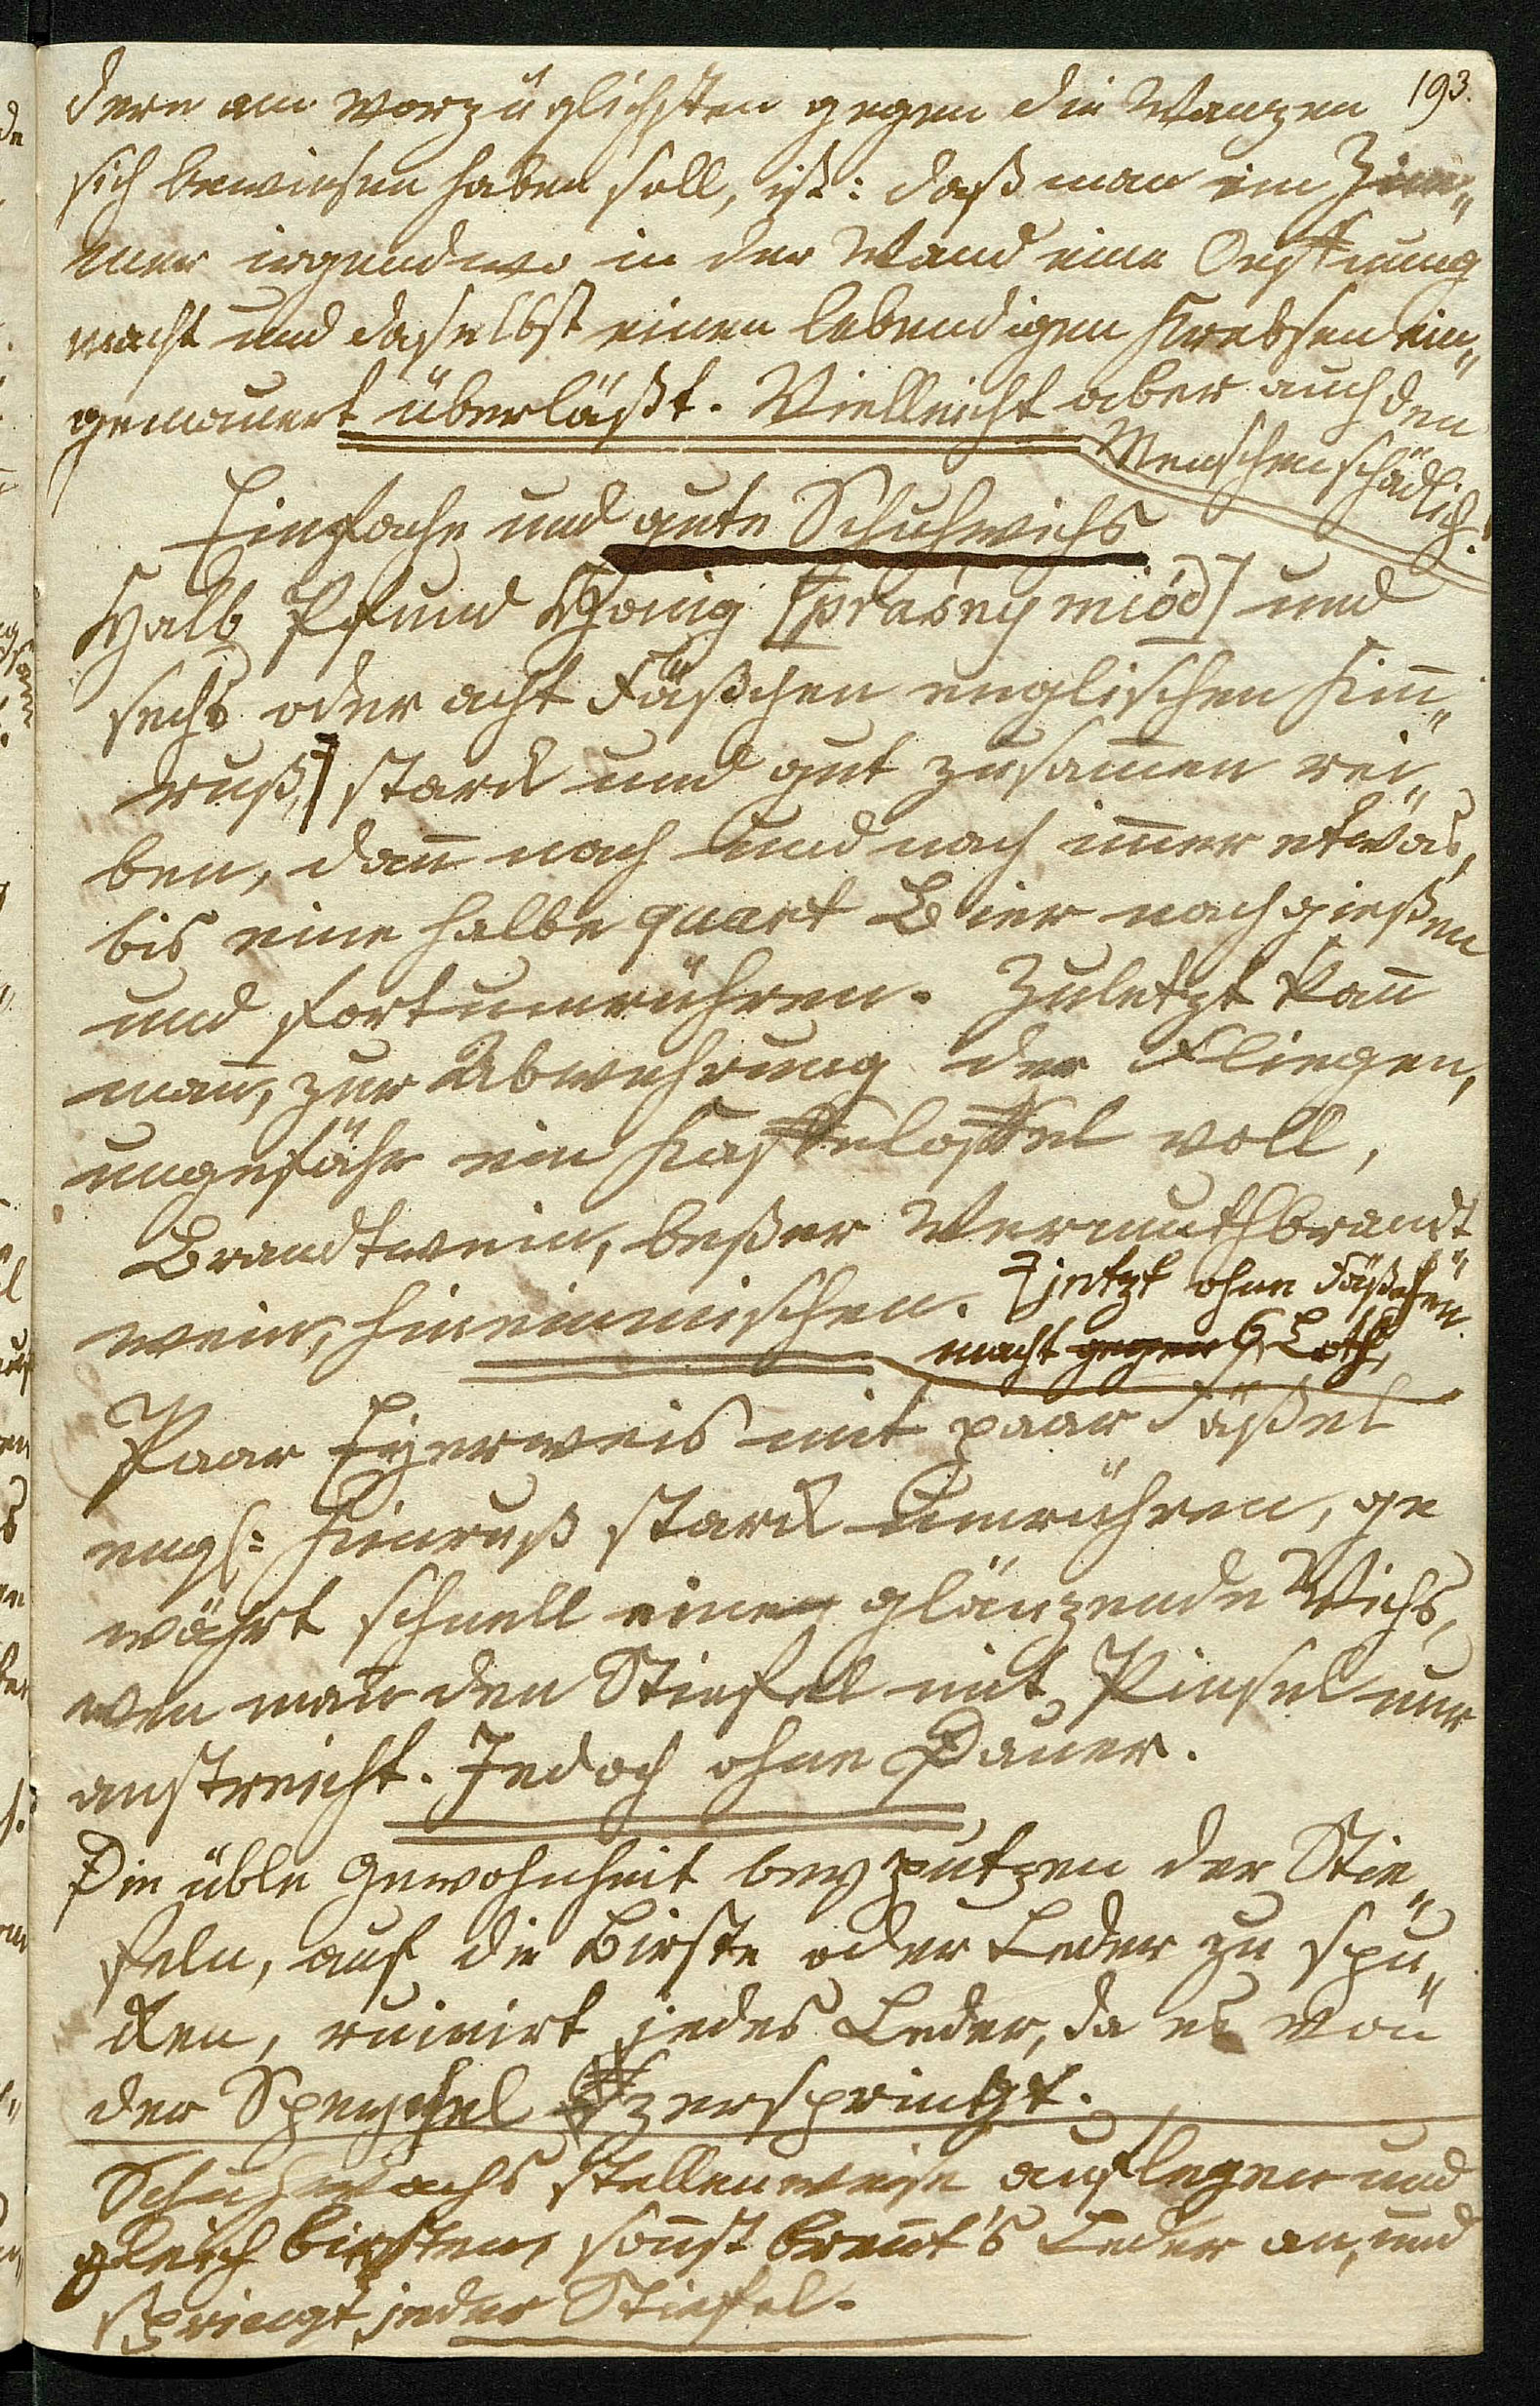 193.
dern am vorzüglichsten gegen die Wanzen
sich bewiesen haben soll, ist: daß man im Zim„
mer irgendwo in der Wand eine Oeffnung
macht und daselbst einen lebendigen Krebsen ein„
gemauert überläßt. Vielleicht aber auch den
Menschen schädlich.
Einfache und gute Schuhwichs
Halb Pfund Honig [prasny miód] und
sechs oder acht Fäßchen englischen Kin„
ruß, stark und gut zusam̅en rei„
ben, dan̅ nach und nach im̅er etwas,
bis eine halbe quart Bier nachgießen
und fortumrühren. Zuletzt kan̅
man, zur Abwehrung der Fliegen,
ungefähr ein Kaffeloffel voll,
Brandtwein, beßer Wermuthbrandt„
wein, hineinmischen.
jetzt ohne Fäßchen.
macht gegen 6 Loth,
Paar Eyerweis mit paar Fäßel
engl: Kienruß stark umrühren, ge
währt schnell eine glänzende Wichs,
wen̅ man den Stiefel mit Pinsel nur
anstreicht. Jedoch ohne Dauer.
Die üble Gewohnheit bey putzen der Stie„
feln, auf die Birste oder Leder zu spu„
cken, ruinirt jedes Leder, da es von
der Speychel zerspringt.
Schuhwachs stellenweise auflegen und
gleich birsten, son̅st bren̅t's Leder an, und
springt jeder Stiefel.